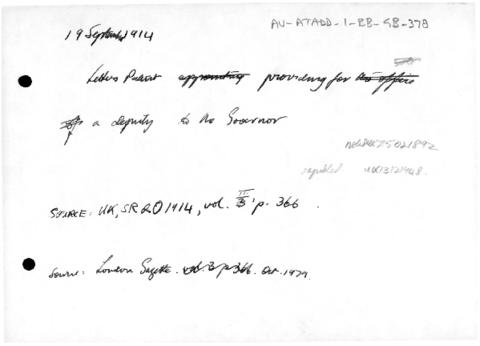 AU-ATADD-1-BB-GB-378
19 September 1914
Letters Patent appointing providing for the office
of a deputy to the Governor
repealed
SOURCE: UK, SR&O 1914, vol. III, p. 366.
Source: London Gazette. vol 3 p 366. Oct. 1979.